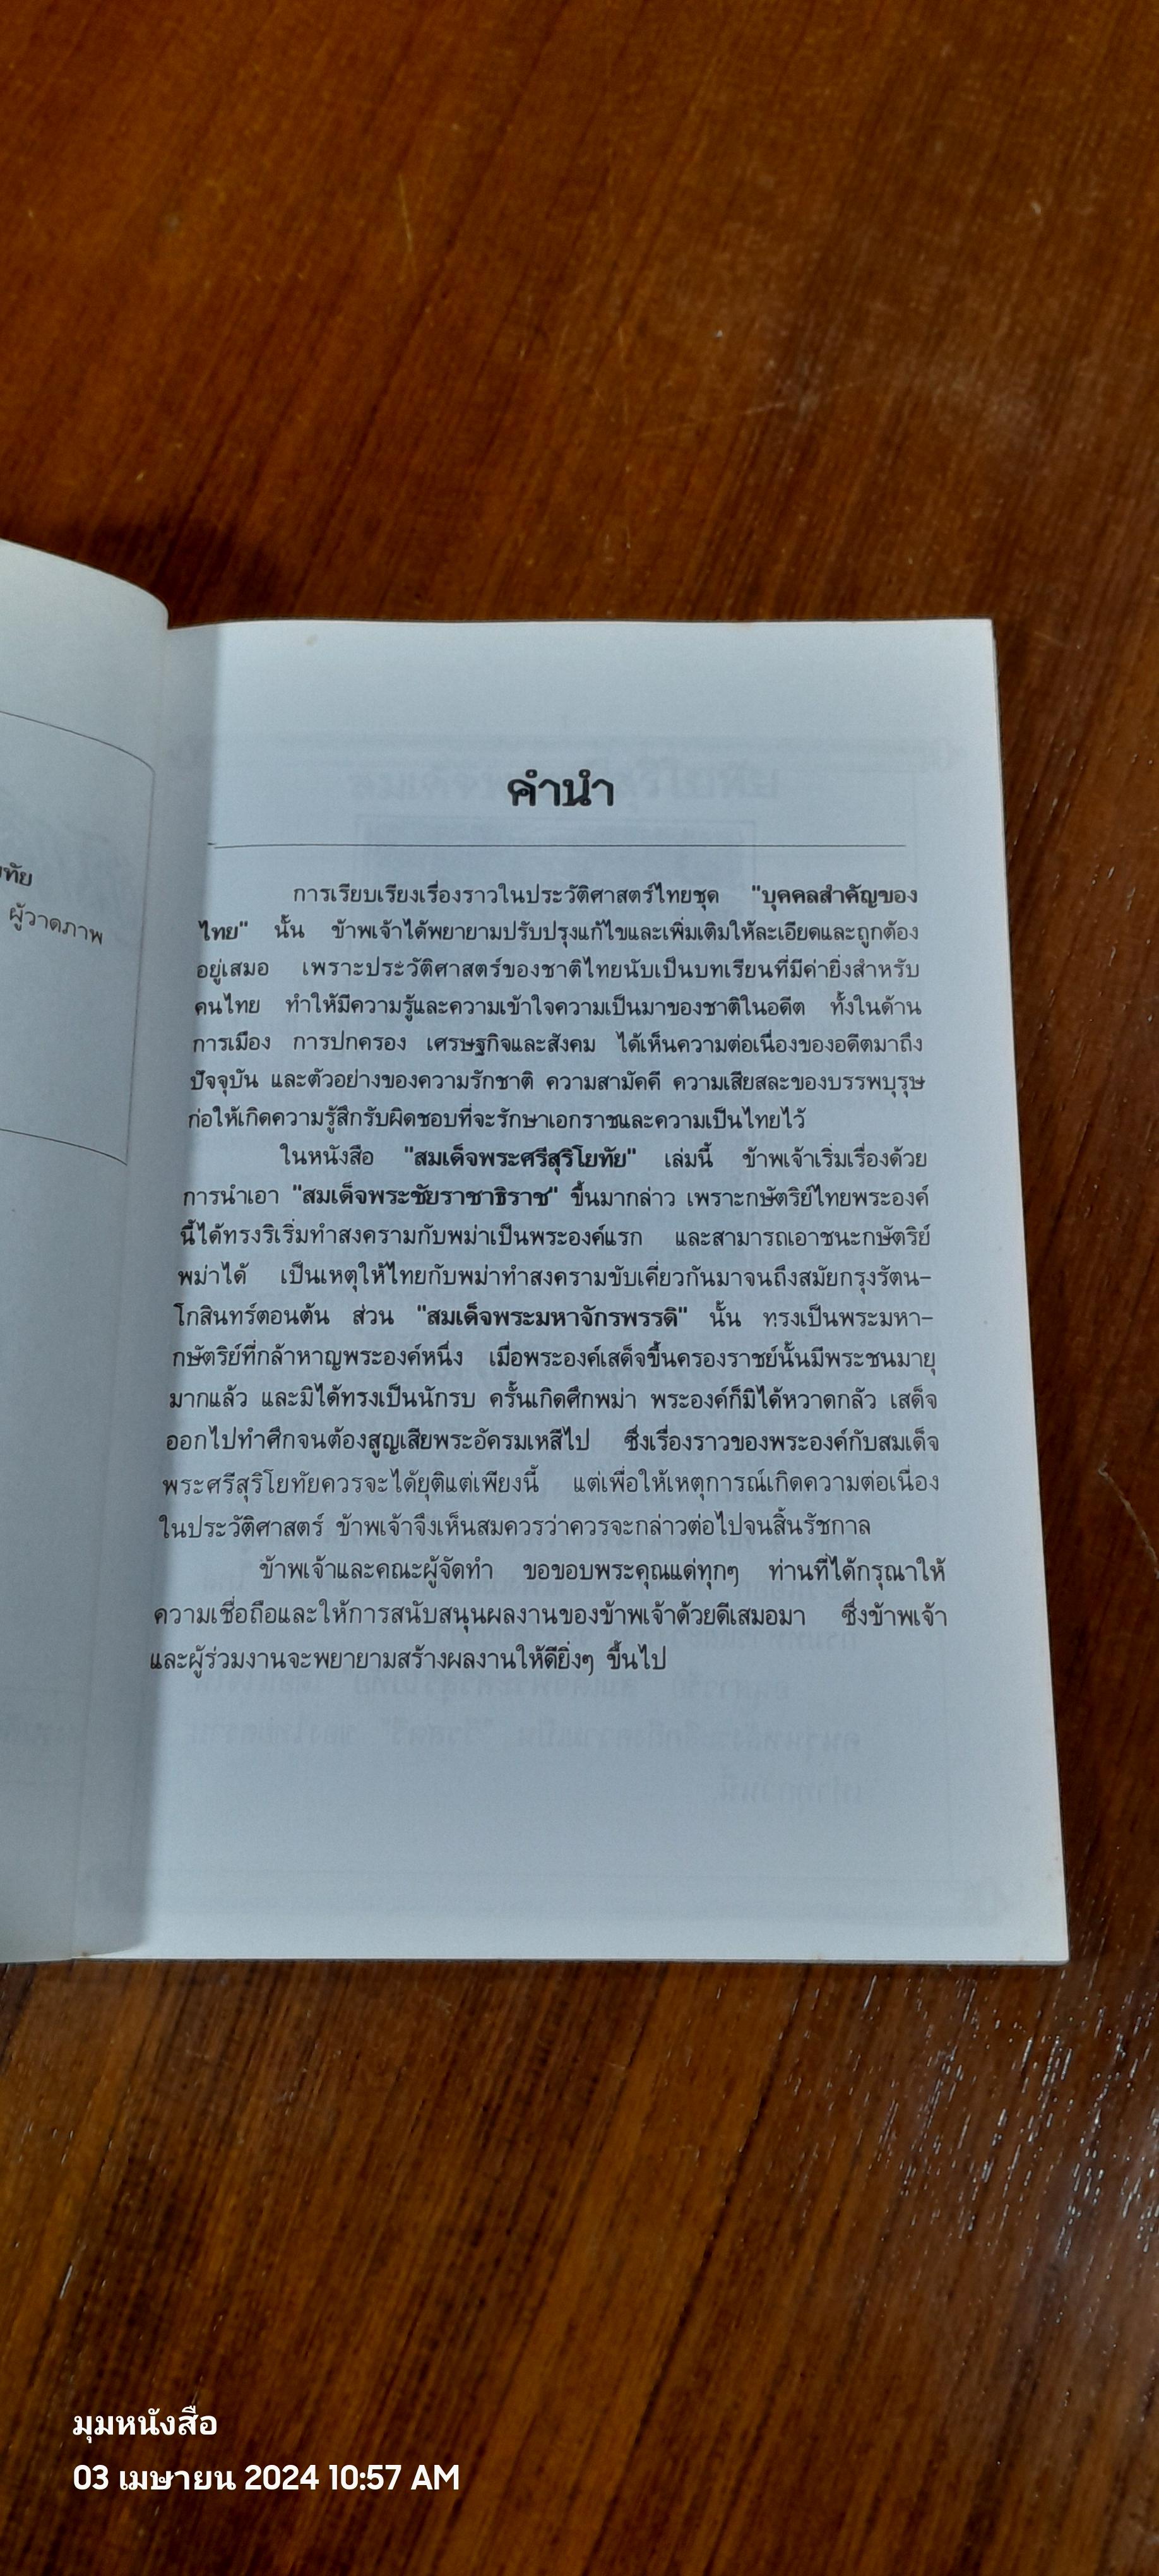 ผู้วาดภาพ
คำนำ
การเรียบเรียงเรื่องราวในประวัติศาสตร์ไทยชุด "บุคคลสำคัญของ
ไทย" นั้น ข้าพเจ้าได้พยายามปรับปรุงแก้ไขและเพิ่มเติมให้ละเอียดและถูกต้อง
อยู่เสมอ เพราะประวัติศาสตร์ของชาติไทยนับเป็นบทเรียนที่มีค่ายิ่งสำหรับ
คนไทย ทำให้มีความรู้และความเข้าใจความเป็นมาของชาติในอดีต ทั้งในด้าน
การเมือง การปกครอง เศรษฐกิจและสังคม ได้เห็นความต่อเนื่องของอดีตมาถึง
ปัจจุบัน และตัวอย่างของความรักชาติ ความสามัคคี ความเสียสละของบรรพบุรุษ
ก่อให้เกิดความรู้สึกรับผิดชอบที่จะรักษาเอกราชและความเป็นไทยไว้
ในหนังสือ "สมเด็จพระศรีสุริโยทัย" เล่มนี้ ข้าพเจ้าเริ่มเรื่องด้วย
การนำเอา "สมเด็จพระชัยราชาธิราช" ขึ้นมากล่าว เพราะกษัตริย์ไทยพระองค์
นี้ได้ทรงริเริ่มทำสงครามกับพม่าเป็นพระองค์แรก และสามารถเอาชนะกษัตริย์
พม่าได้ เป็นเหตุให้ไทยกับพม่าทำสงครามขับเคี่ยวกันมาจนถึงสมัยกรุงรัตน-
โกสินทร์ตอนต้น ส่วน "สมเด็จพระมหาจักรพรรดิ" นั้น ทรงเป็นพระมหา-
กษัตริย์ที่กล้าหาญพระองค์หนึ่ง เมื่อพระองค์เสด็จขึ้นครองราชย์นั้นมีพระชนมายุ
มากแล้ว และมิได้ทรงเป็นนักรบ ครั้นเกิดศึกพม่า พระองค์ก็มิได้หวาดกลัว เสด็จ
ออกไปทำศึกจนต้องสูญเสียพระอัครมเหสีไป ซึ่งเรื่องราวของพระองค์กับสมเด็จ
พระศรีสุริโยทัยควรจะได้ยุติแต่เพียงนี้ แต่เพื่อให้เหตุการณ์เกิดความต่อเนื่อง
ในประวัติศาสตร์ ข้าพเจ้าจึงเห็นสมควรว่าควรจะกล่าวต่อไปจนสิ้นรัชกาล
ข้าพเจ้าและคณะผู้จัดทำ ขอขอบพระคุณแด่ทุกๆ ท่านที่ได้กรุณาให้
ความเชื่อถือและให้การสนับสนุนผลงานของข้าพเจ้าด้วยดีเสมอมา ซึ่งข้าพเจ้า
และผู้ร่วมงานจะพยายามสร้างผลงานให้ดียิ่งๆ ขึ้นไป
มุมหนังสือ
03 เมษายน 2024 10:57 AM